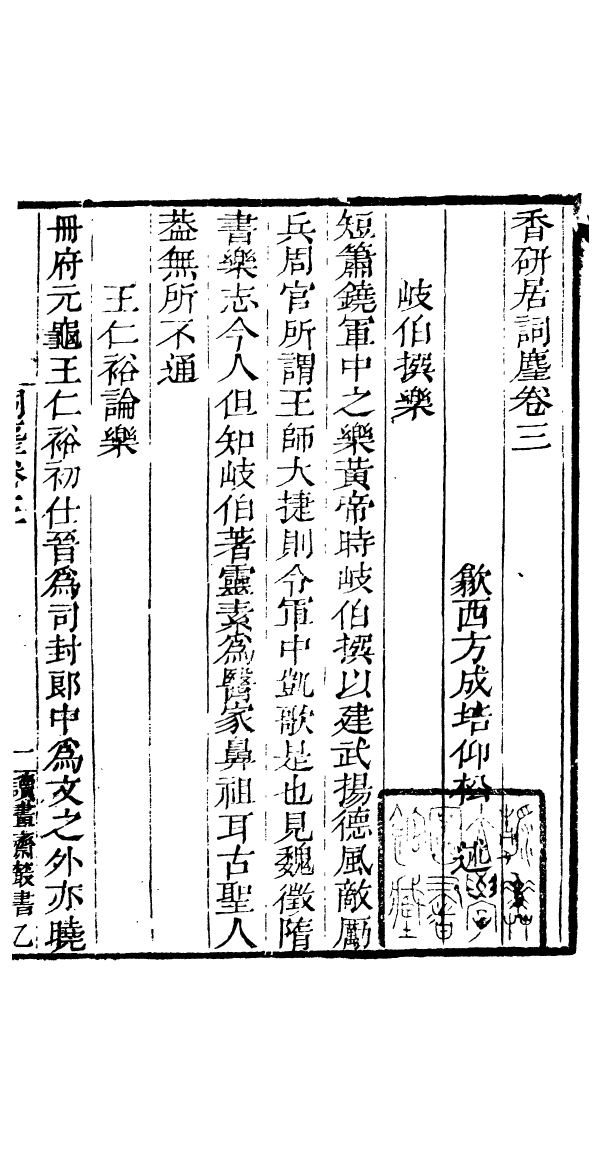 香硏居詞麈卷三
歙西方成培仰松 述
岐伯撰樂
短簫鐃軍中之樂黃帝時岐伯撰以建武揚德風敵勵
兵周官所謂王師大捷則令軍中凱歌是也見魏徵隋
書樂志今人但知岐伯著靈素爲醫家鼻祖耳古聖人
葢無所不通
王仁裕論樂
冊府元龜王仁裕初仕晉爲司封郎中爲文之外亦曉
詞麈卷三 一 讀畫齋叢書 乙